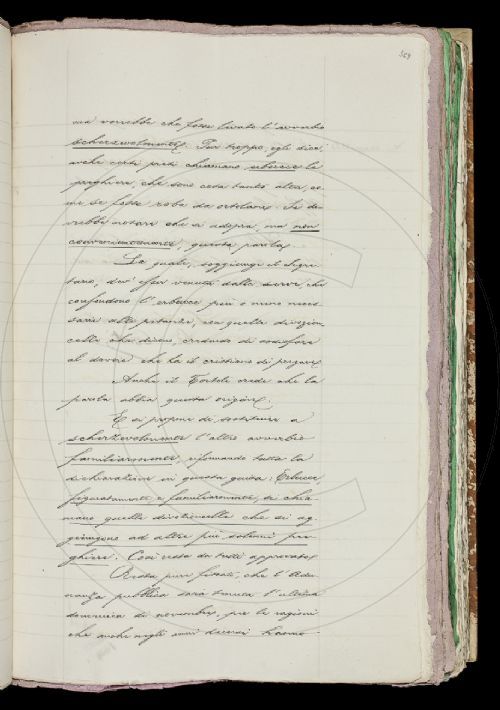 ma vorrebbe che fosse levato l'avverbio
scherzevolmente. Pur troppo, egli dice,
anche certi preti chiamano erbucce le
preghiere, che sono cosa tanto alta, co-
me se fosse roba da ortolani. Si do-
vrebbe notare che si adopra, ma non
convenientemente, questa parola.
La quale, soggiunge il Segre-
tario, dev'esser venuta dalle serve, che
confondono l'erbucce più o meno neces-
sarie alle pietanze, con quelle divozion-
celle che dicono, credendo di sodisfare
al dovere che ha il cristiano di pregare.
Anche il Tortoli crede che la
parola abbia questa origine.
E si propone di sostituire a
scherzevolmente l'altro avverbio
familiarmente, riformando tutta la
dichiarazione in questa guisa: Erbucce,
figuratamente e familiarmente, si chia-
mano quelle divozioncelle che si ag-
giungono ad altre più solenni pre-
ghiere. Così resta da tutti approvato.
Resta pure fissato, che l'Adu-
nanza pubblica sarà tenuta l'ultima
domenica di novembre, per le ragioni
che anche negli anni decorsi hanno